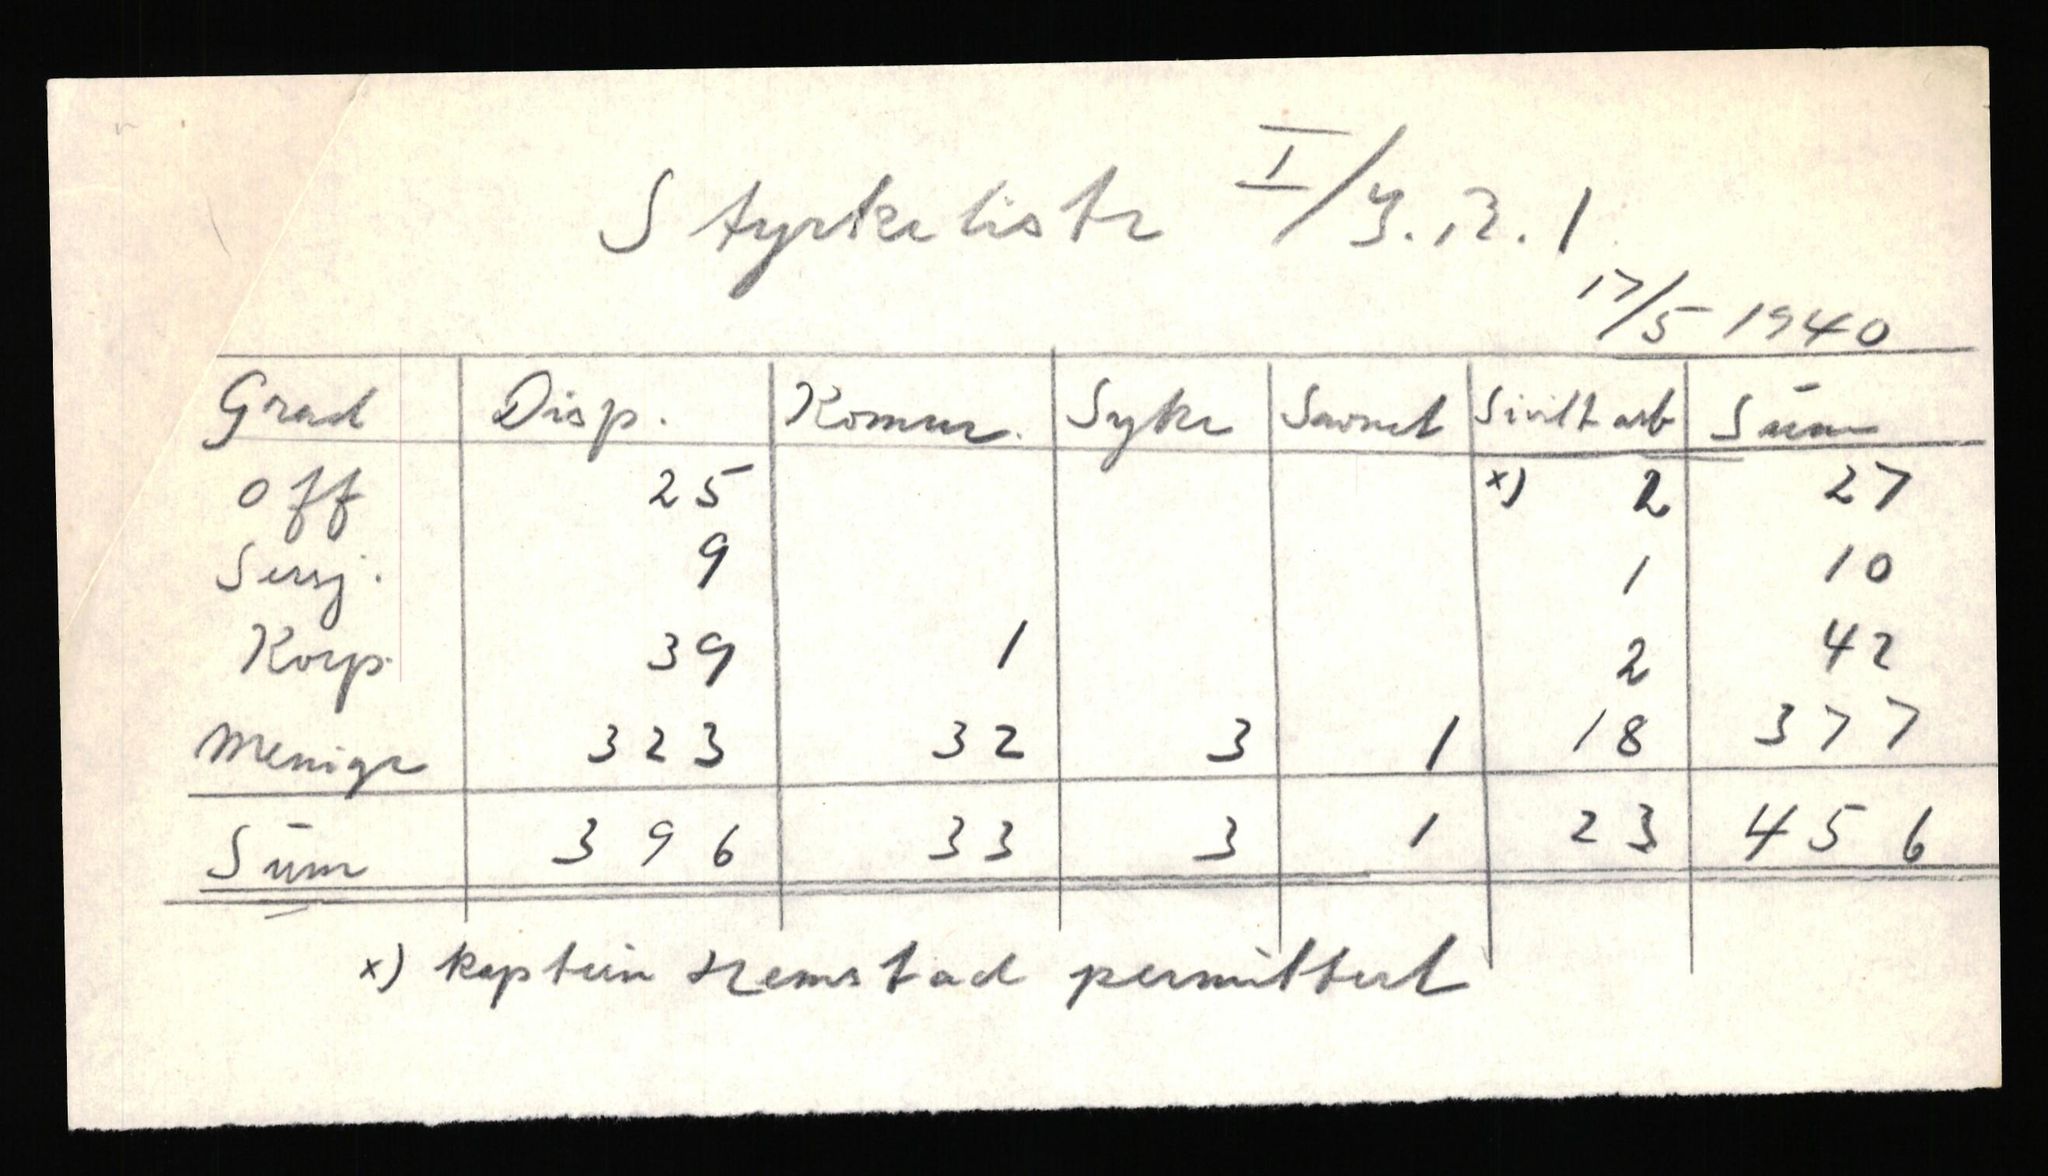 Styrkeliste I/J.R.1
17/5 1940
Grad Disp. Komm. Syke Savnet Sivilt arb Sum
Off 25 x) 2 27
Sersj. 9 1 10
Korp. 39 1 2 42
Menige 323 32 3 1 18 377
Sum 396 33 3 1 23 456
x) kaptein Hemstad permittert